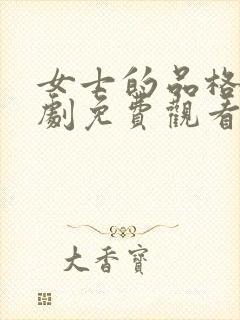 女士的品格
劇免費觀看
大香寶